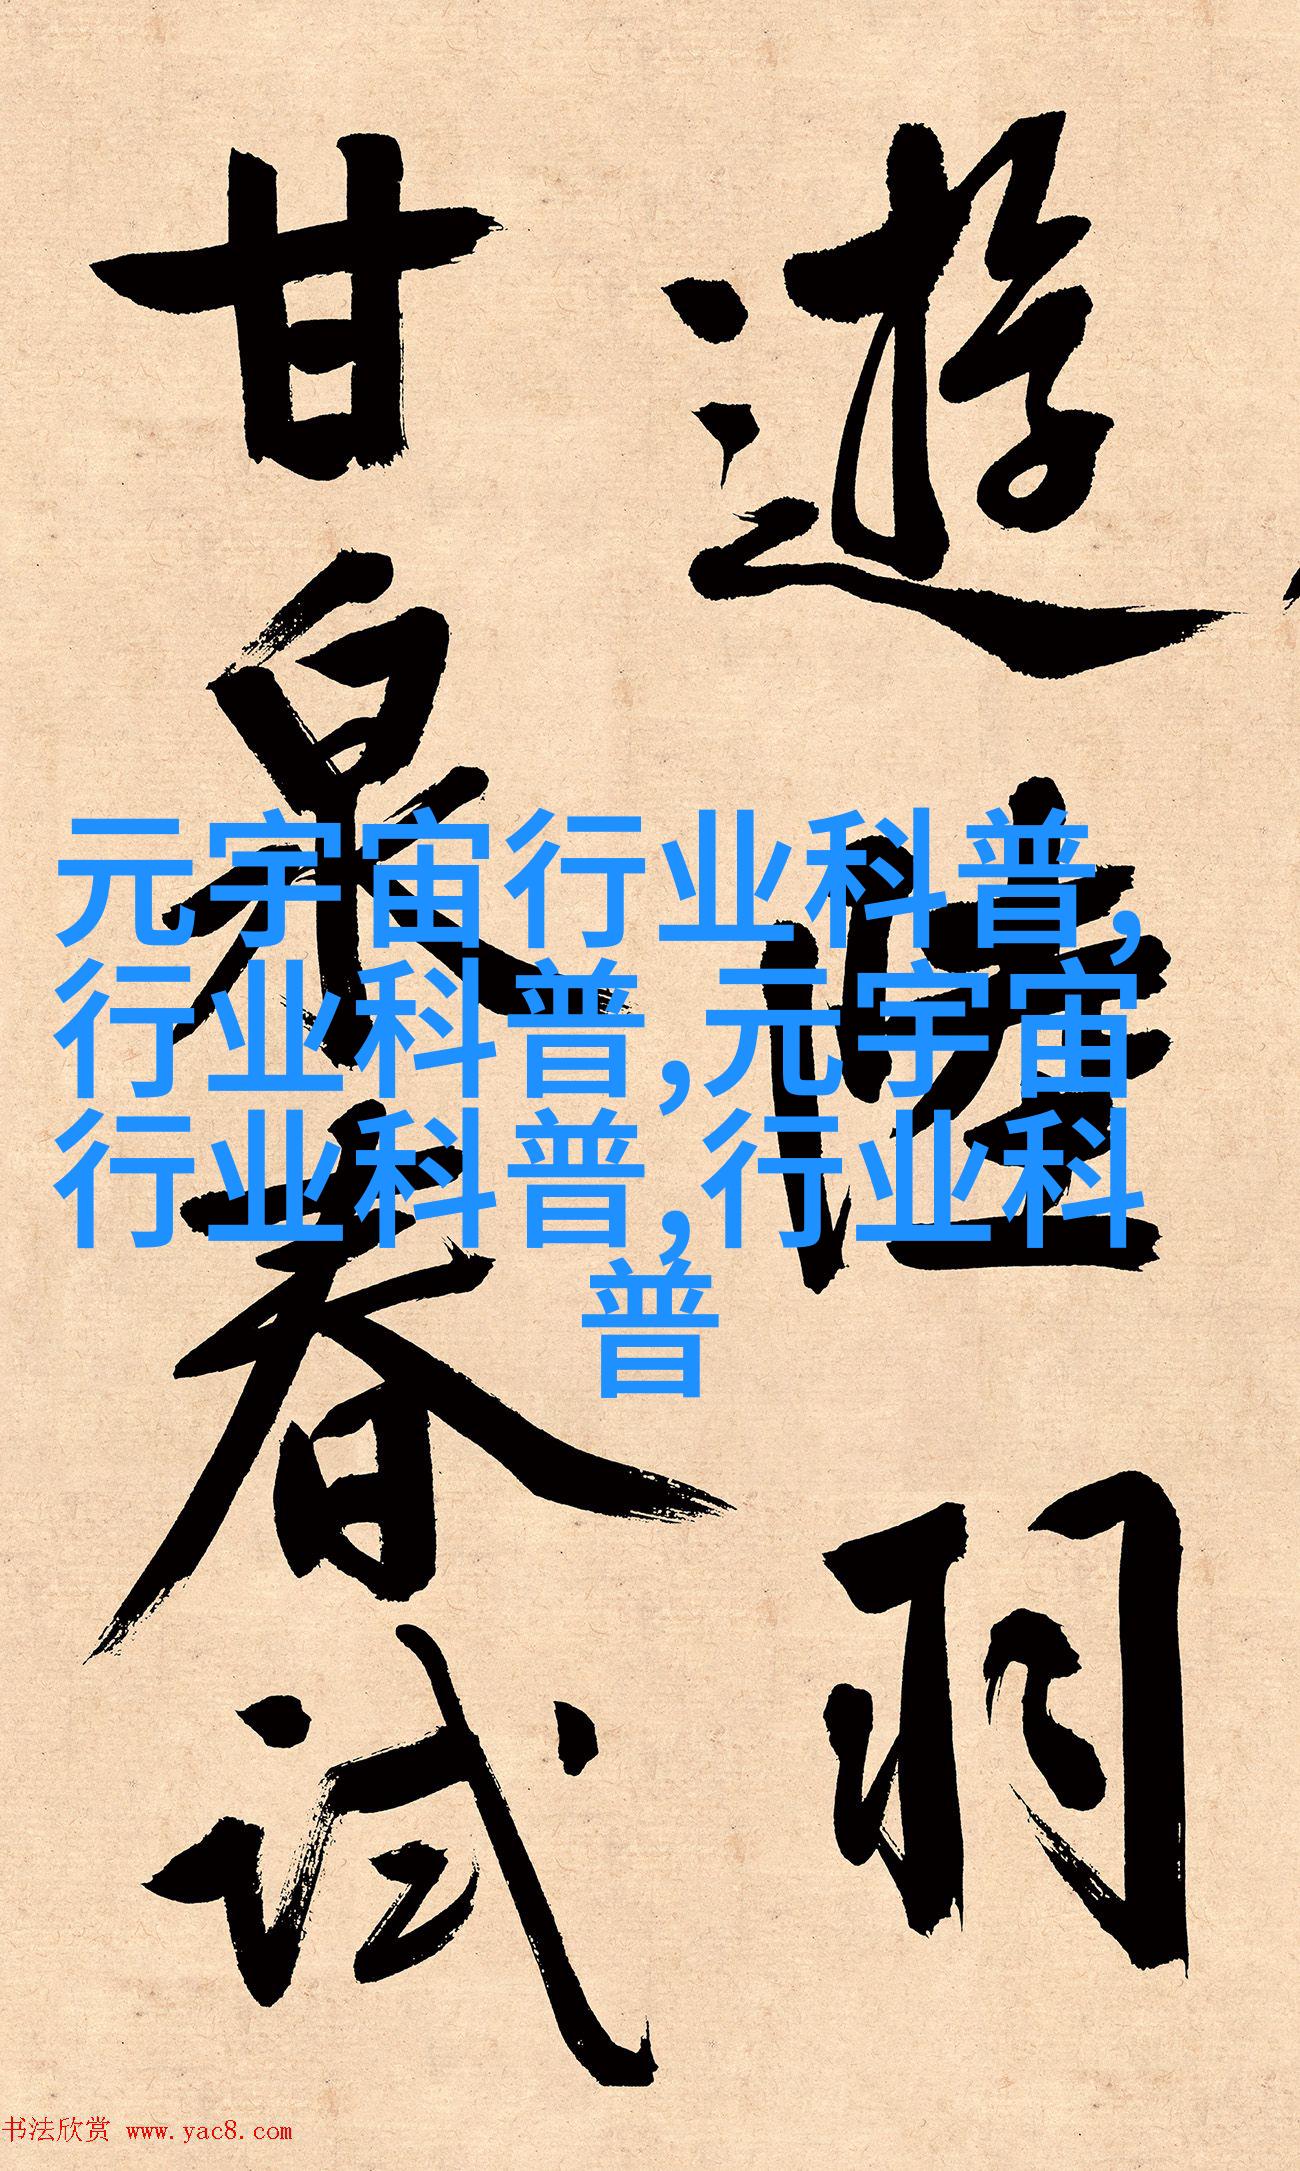 遊陸羽
甘泉春试
元宇宙行业科普,
行业科普,元宇宙
行业科普,行业科
普
书法欣赏 www.yac8.com